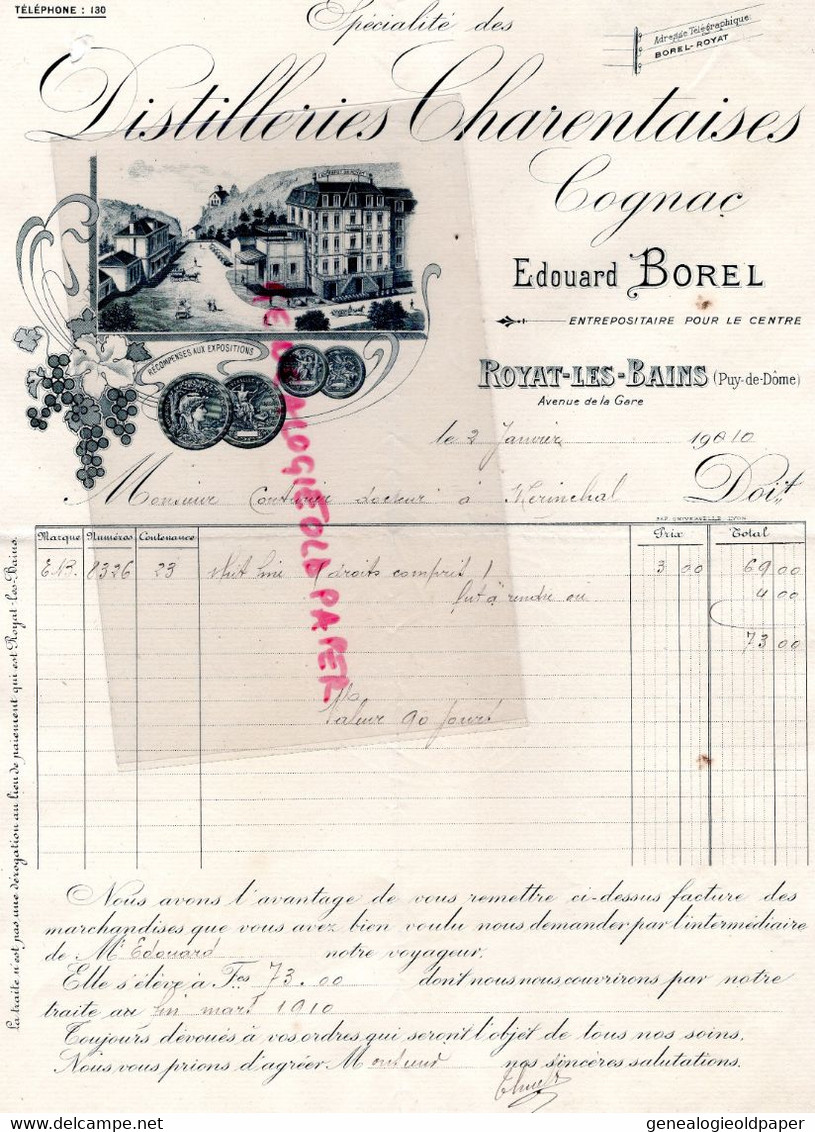 TÉLÉPHONE : 130
Spécialité des
Adresse Télégraphique:
BOREL-ROYAT
Distilleries Charentaises
Cognac
Edouard BOREL
ENTREPOSITAIRE POUR LE CENTRE
RÉCOMPENSES AUX EXPOSITIONS
ROYAT-LES-BAINS (Puy-de-Dôme)
Avenue de la Gare
le 2 Janvier 1910
Monsieur docteur à Merinchal Doit
Marque Numéros Contenance Prix Total
8326 23 droits compris 3 00 69 00
fut à rendre ou 4 00
73 00
Valeur 90 jours
La traite n'est pas une dérogation au lieu de paiement qui est Royat-les-Bains.
Nous avons l'avantage de vous remettre ci-dessus facture des
marchandises que vous avez bien voulu nous demander par l'intermédiaire
de Mr Edouard notre voyageur.
Elle s'élève à Frs 73.00 dont nous nous couvrirons par notre
traite au fin mars 1910
Toujours dévoués à vos ordres qui seront l'objet de tous nos soins,
Nous vous prions d'agréer Monsieur nos sincères salutations.
GENEALOGIEOLDPAPER
genealogieoldpaper